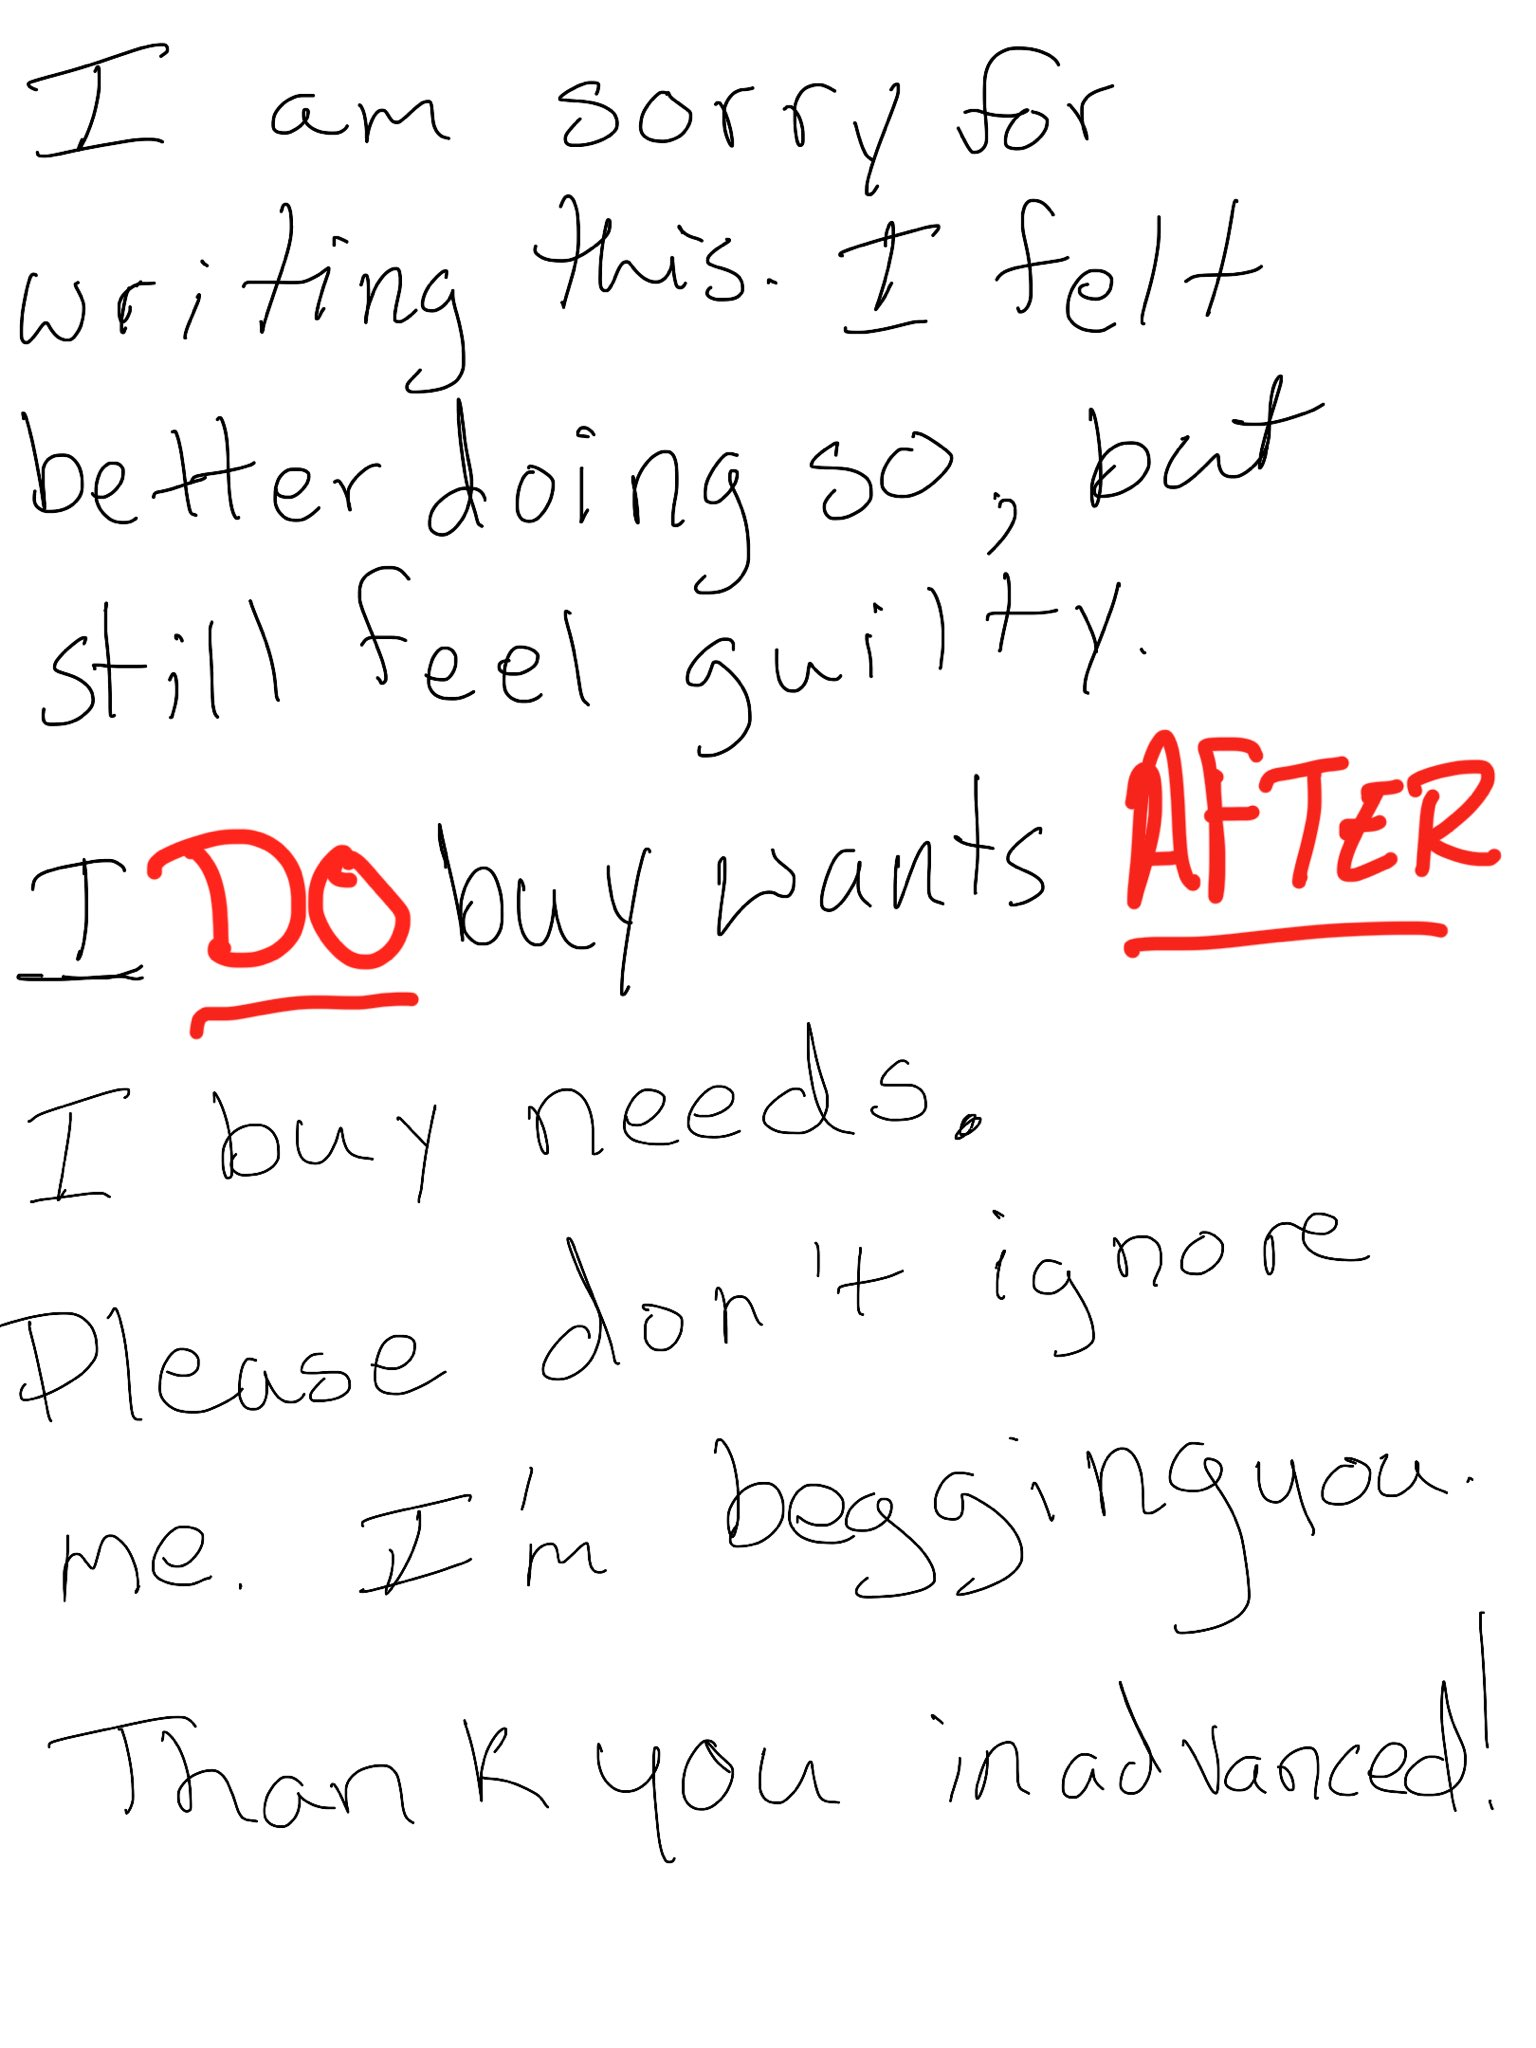 I am sorry for
writing this. I felt
better doing so, but
still feel guilty.
I DO buy wants AFTER
I buy needs.
Please don't ignore
me. I'm begging you.
Thank you in advanced!